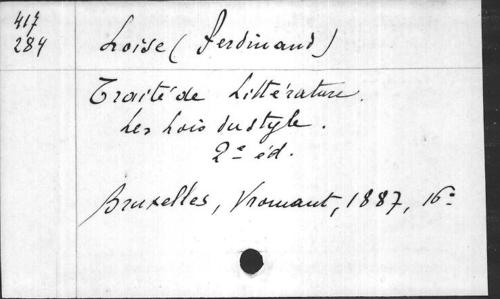 417
284
Loise (Ferdinand)
Traité de Littérature.
Les Lois du style.
2e éd.
Bruxelles, Vromant, 1887, 16º